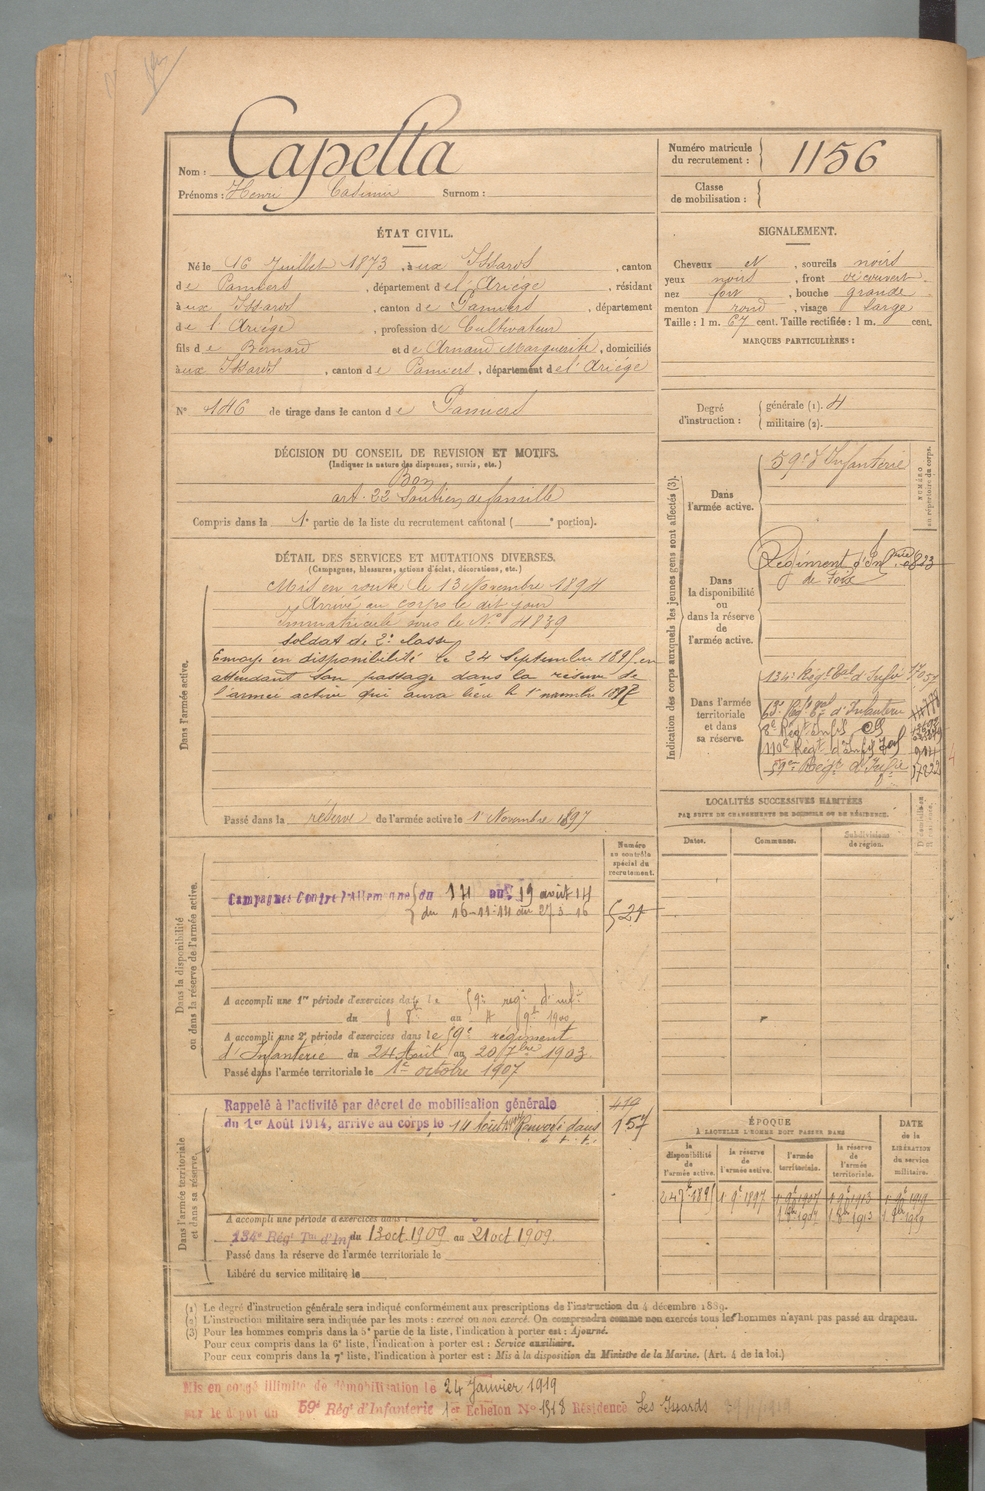 Nom : Capella
Prénoms : Henri Casimir Surnom :
Numéro matricule
du recrutement : 1156
Classe
de mobilisation :
ÉTAT CIVIL.
Né le 16 Juillet 1873, à ux Issards, canton
d e Pamiers, département d e l'Ariège, résidant
à ux Issards, canton d e Pamiers, département
d e l'Ariège, profession de Cultivateur
fils d e Bernard et de Arnaud Marguerite, domiciliés
à ux Issards, canton d e Pamiers, département d e l'Ariège
N° 146 de tirage dans le canton d e Pamiers
SIGNALEMENT.
Cheveux et, sourcils noirs
yeux noirs, front découvert
nez fort, bouche grande
menton rond, visage large
Taille : 1 m. 67 cent. Taille rectifiée : 1 m. cent.
MARQUES PARTICULIÈRES :
Degré
d'instruction :
générale (1). 4
militaire (2).
DÉCISION DU CONSEIL DE REVISION ET MOTIFS.
(Indiquer la nature des dispenses, sursis, etc.)
Bon
art. 22 Soutien de famille
Compris dans la 1e partie de la liste du recrutement cantonal ( e portion).
DÉTAIL DES SERVICES ET MUTATIONS DIVERSES.
(Campagnes, blessures, actions d'éclat, décorations, etc.)
Dans l'armée active.
Mis en route le 13 Novembre 1894
Arrivé au corps le dit jour
Immatriculé sous le N° 4839
soldat de 2e classe
Envoyé en disponibilité le 24 Septembre 1895 en
attendant son passage dans la réserve de
l'armée active qui aura lieu le 1er novembre 1897
Passé dans la réserve de l'armée active le 1er Novembre 1897
Indication des corps auxquels les jeunes gens sont affectés (3).
NUMÉRO
au répertoire du corps.
Dans
l'armée active.
59e d'Infanterie
Dans
la disponibilité
ou
dans la réserve
de
l'armée active.
Régiment d'Infrie
de Foix
Dans l'armée
territoriale
et dans
sa réserve.
134e Régt Tal d'Infie
d'Infanterie
8e Régt Infie
110e Régt d'Infie
59e Régt d'Infie
LOCALITÉS SUCCESSIVES HABITÉES
PAR SUITE DE CHANGEMENTS DE DOMICILE OU DE RÉSIDENCE.
Dates.
Communes.
Subdivisions
de région.
Dans la disponibilité
ou dans la réserve de l'armée active.
Numéro
au contrôle
spécial du
recrutement.
Campagnes Contre l'Allemagne du 14 au 19 août 14
du 16-11-14 au 27-3-16
A accompli une 1re période d'exercices dans le 59e régt d'infie
A accompli une 2e période d'exercices dans le 59e régiment
d'Infanterie du 24 Août au 20 7bre 1903.
Passé dans l'armée territoriale le 1er octobre 1907
Dans l'armée territoriale
et dans sa réserve.
Rappelé à l'activité par décret de mobilisation générale
du 1er Août 1914, arrive au corps le 14 Août Renvoyé dans
157
A accompli une période d'exercices dans :
134e Régt Tal d'Inf du 13 oct. 1909 au 21 oct 1909.
Passé dans la réserve de l'armée territoriale le
Libéré du service militaire le
ÉPOQUE
À LAQUELLE L'HOMME DOIT PASSER DANS
DATE
de la
LIBÉRATION
du service
militaire.
la
disponibilité
de
l'armée active.
la réserve
de
l'armée active.
l'armée
territoriale.
la réserve
de
l'armée
territoriale.
(1) Le degré d'instruction générale sera indiqué conformément aux prescriptions de l'instruction du 4 décembre 1889.
(2) L'instruction militaire sera indiquée par les mots : exercé ou non exercé. On comprendra comme non exercés tous les hommes n'ayant pas passé au drapeau.
(3) Pour les hommes compris dans la 5e partie de la liste, l'indication à porter est : Ajourné.
Pour ceux compris dans la 6e liste, l'indication à porter est : Service auxiliaire.
Pour ceux compris dans la 7e liste, l'indication à porter est : Mis à la disposition du Ministre de la Marine. (Art. 4 de la loi.)
Mis en congé illimité de démobilisation le 24 Janvier 1919
par le dépôt du 59e Régt d'Infanterie 1er Echelon No 1318 Résidence Les Issards